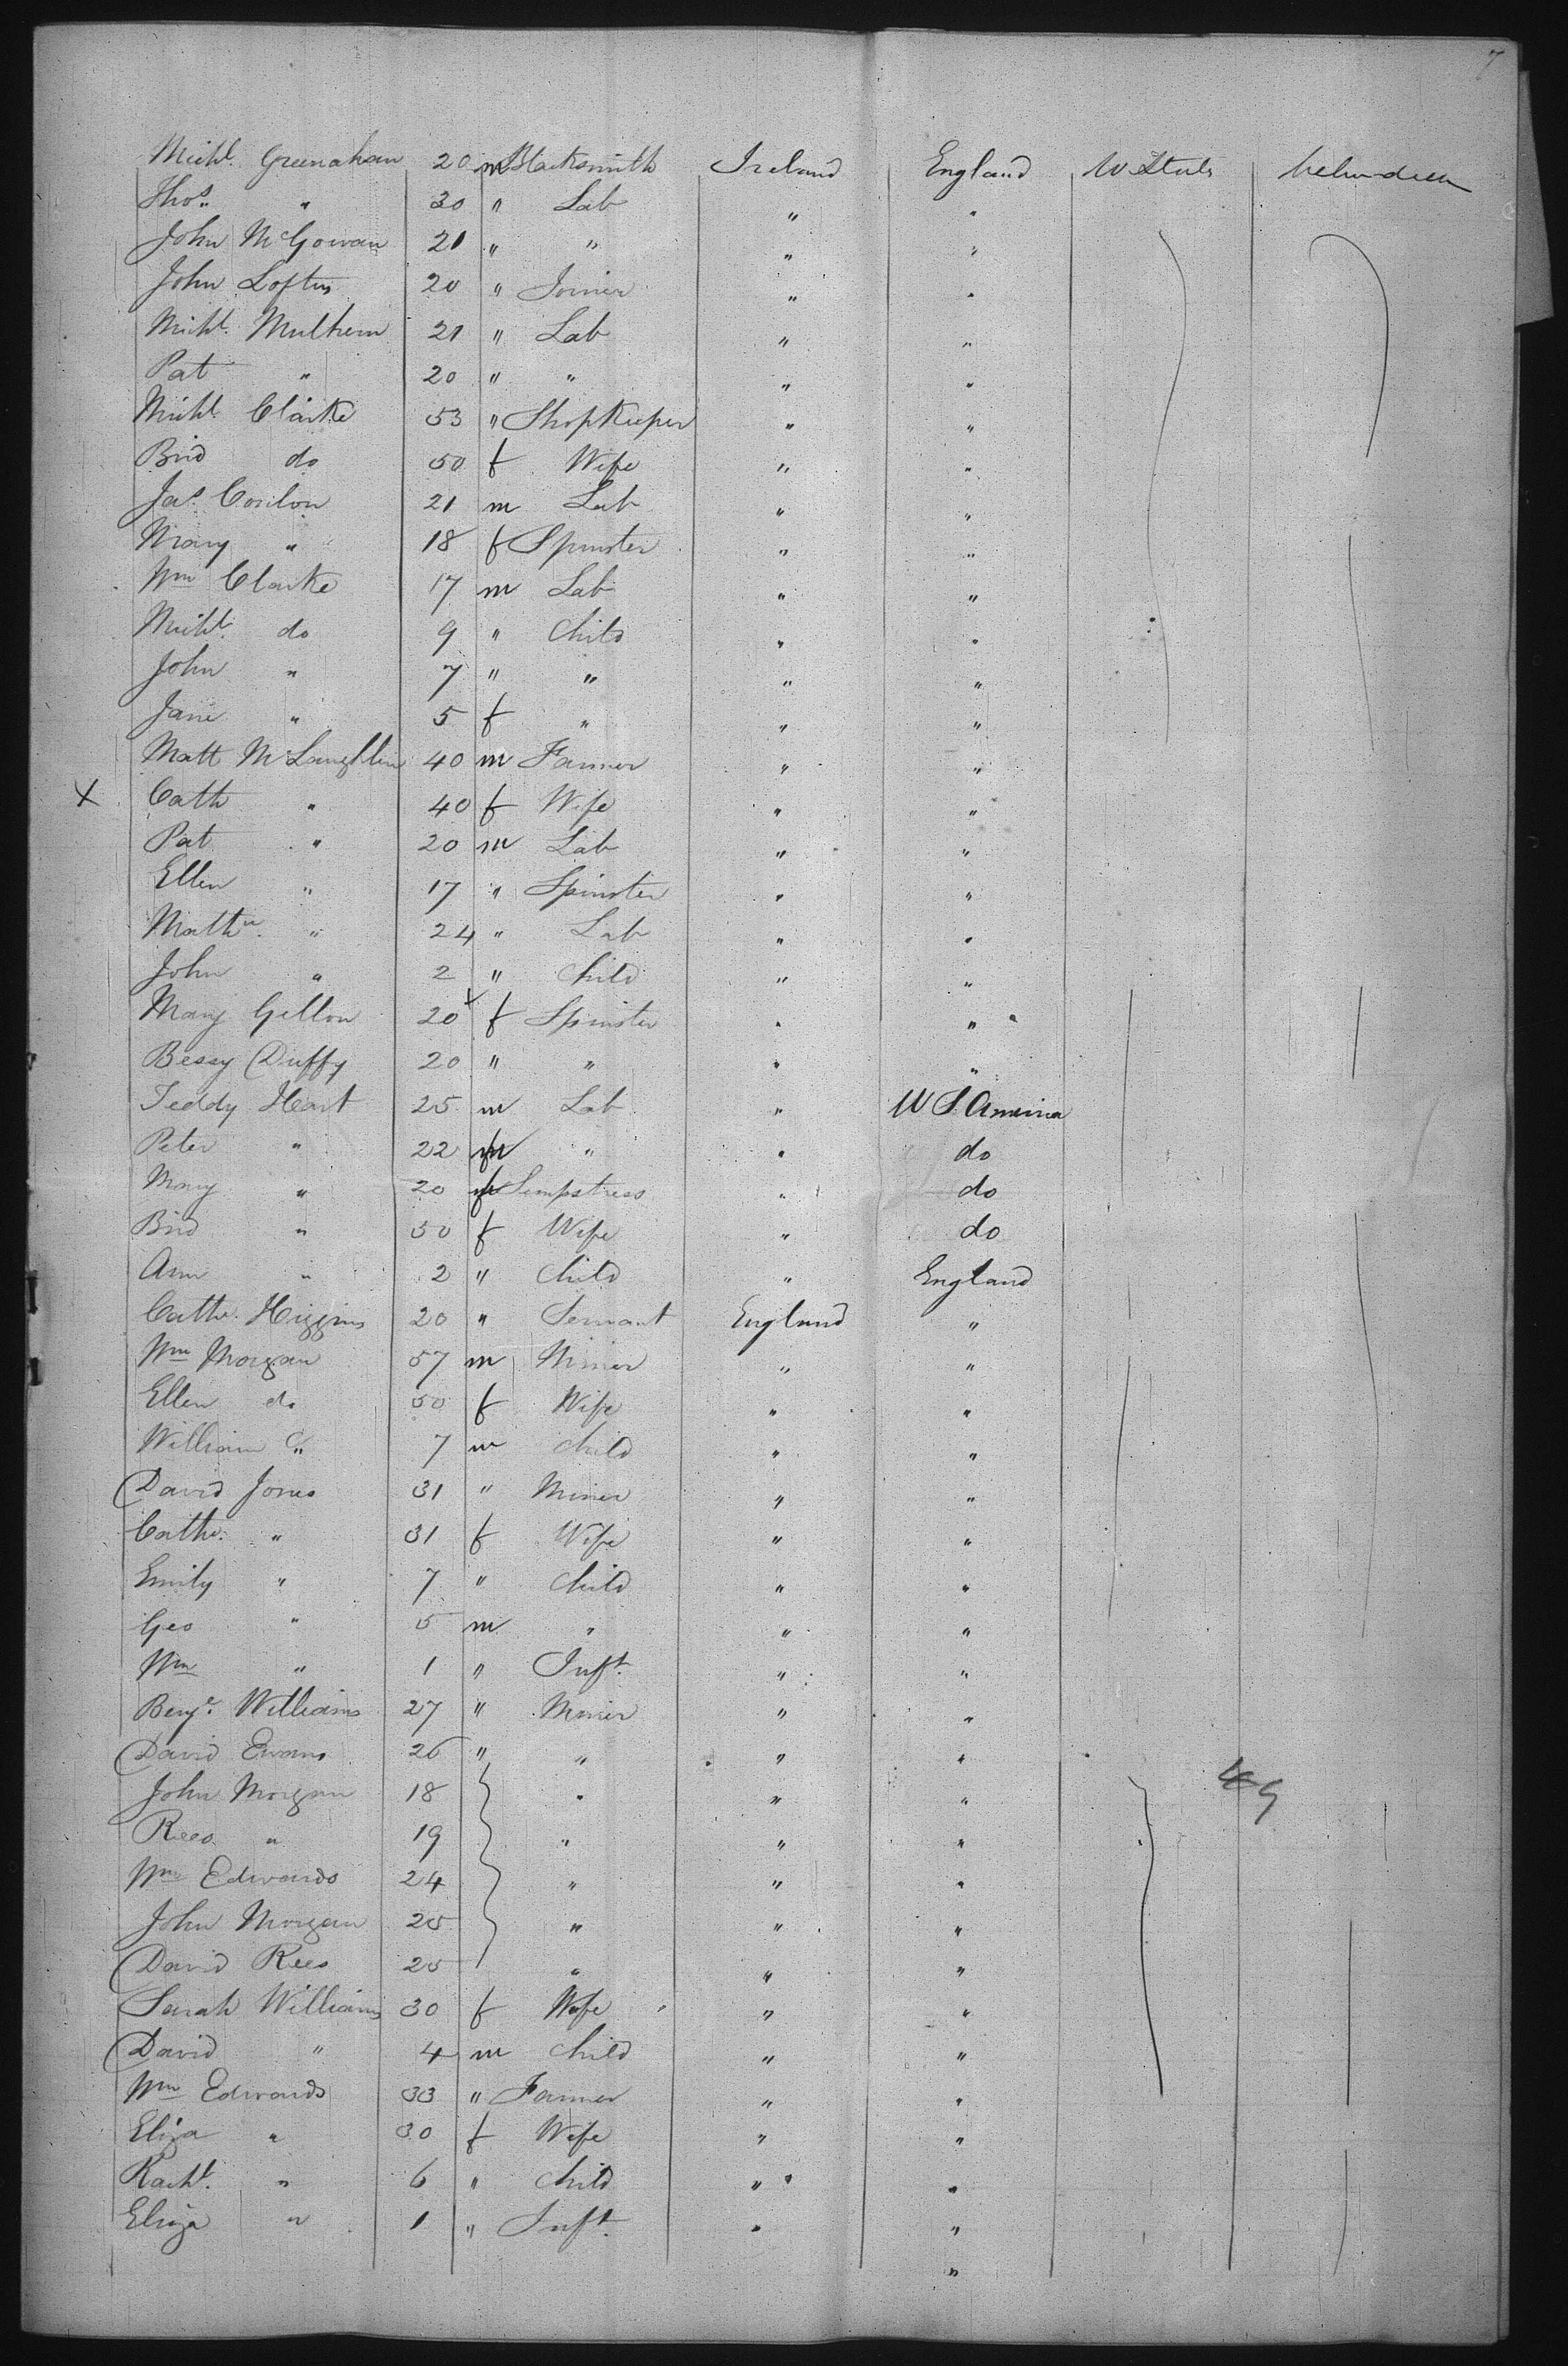 7
Michl. Greenahan 20 m Blacksmith Ireland England U States
Thos. " 30 " Lab " "
John McGowan 21 " " " "
John Loftus 20 " Joiner " "
Michl. Mulhern 21 " Lab " "
Pat " 20 " " " "
Michl. Clarke 53 " Shopkeeper " "
Brid do 50 f Wife " "
Jas. Conlon 21 m Lab " "
Mary " 18 f Spinster " "
Wm Clarke 17 m Lab " "
Michl. do 9 " Child " "
John " 7 " " " "
Jane " 5 f " " "
Matt McLaughlin 40 m Farmer " "
X Cath " 40 f Wife " "
Pat " 20 m Lab " "
Ellen " 17 " Spinster " "
Matthw. " 24 " Lab " "
John " 2 " Child " "
Mary Gillon 20 x f Spinster " "
Bessy Duffy 20 " " " "
Teddy Heart 25 m Lab " U S America
Peter " 22 m " " do
Mary " 20 f Sempstress " do
Brid " 50 f Wife " do
Ann " 2 " Child " England
Cathe. Higgins 20 " Servant England "
Wm Morgan 57 m Miner " "
Ellen do 50 f Wife " "
William " 7 m Child " "
David Jones 31 " Miner " "
Cathe. " 31 f Wife " "
Emily " 7 " Child " "
Geo " 5 m " " "
Wm " 1 " Inft. " "
Benj. Williams 27 " Miner " "
David Evans 26 " " " "
John Morgan 18 " " " 49
Rees " 19 " " "
Wm Edwards 24 " " "
John Morgan 25 " " "
David Rees 25 " " "
Sarah Williams 30 f Wife " "
David " 4 m Child " "
Wm Edwards 33 " Farmer " "
Eliza " 30 f Wife " "
Rachl. " 6 " Child " "
Eliza " 1 " Inft. " "
"